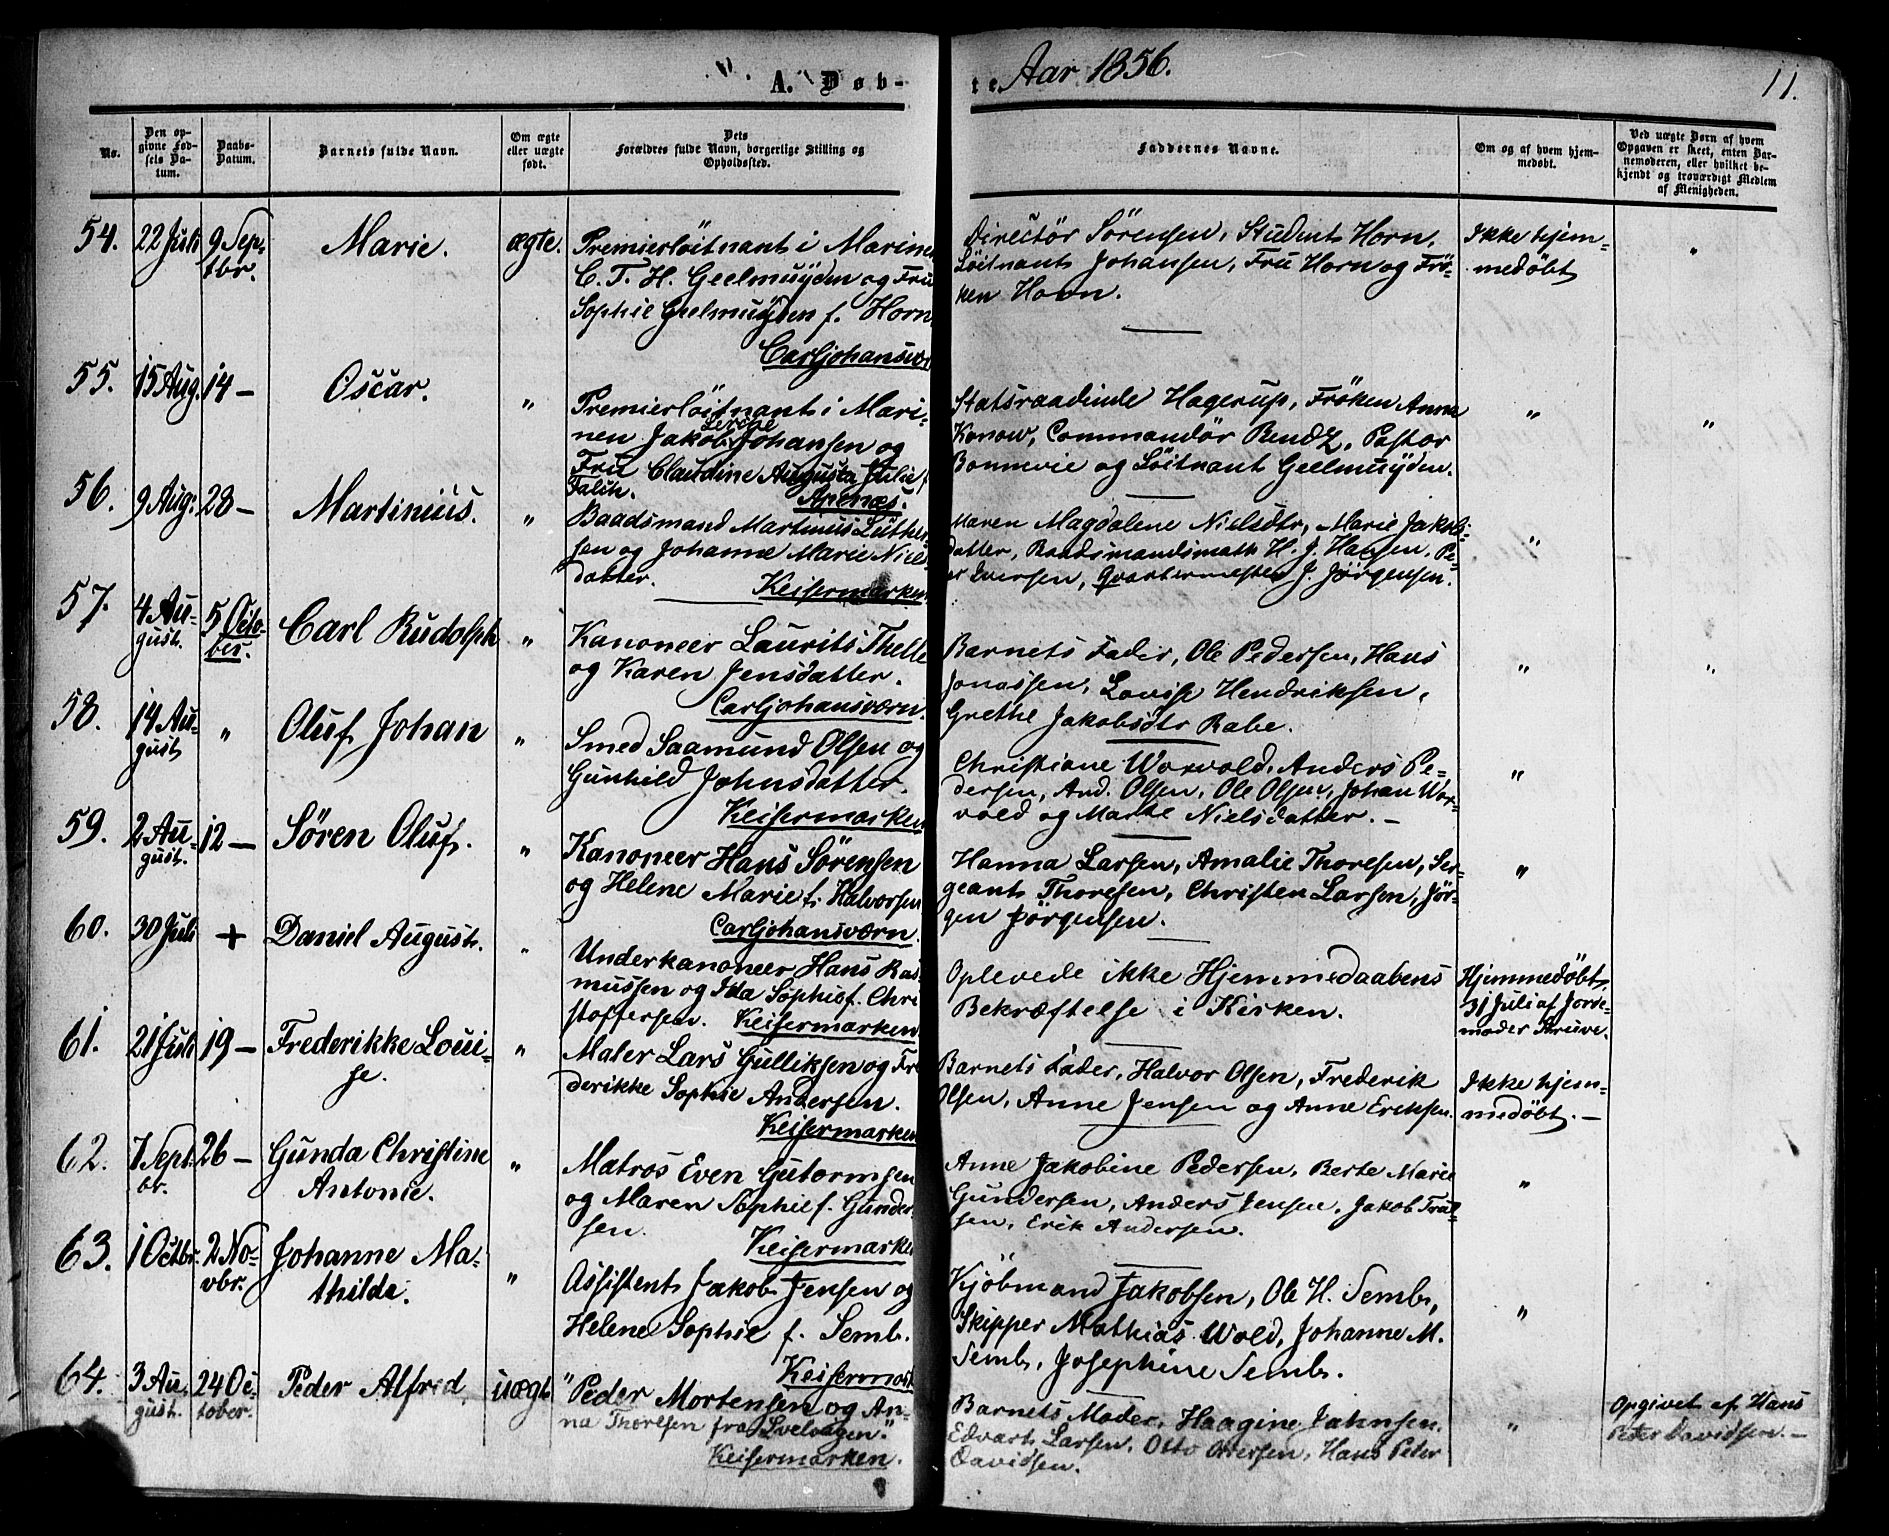 A. Døb-
te. Aar 1856.
11.
No.
Den op-
givne Fød-
sels Da-
tum.
Daabs-
Datum.
Barnets fulde Navn.
Om ægte
eller uægte
født.
Dets
Forældres fulde Navn, borgerlige Stilling og
Opholdssted.
Faddernes Navne.
Om og af hvem hjem-
medøbt.
Ved uægte Børn af hvem
Opgaven er skeet, enten Bar-
nemoderen, eller hvilket be-
kjendt og troværdigt Medlem
af Menigheden.
54. 22 Juli 9 Sep-
tbr.
Marie. ægte.
Premierlöitnant i Marinen
C. T. H. Geelmuyden og Fru
Sophie Geelmuyden f. Horn
Carljohansvær
Directör Sörensen, Student Horn,
Löitnant Johansen, Fru Horn og Frö-
ken Horn.
Ikke hjem-
medöbt
"
55. 15 Aug. 14 — Oscar. "
Premierlöitnant i Mari-
nen Jakob Lerche Johansen og
Fru Claudine Augusta Julie f.
Falch. Apenæs.
Statsraadinde Hagerup, Fröken Anna
Konow, Commandör Bendz, Pastor
Bonnevie og Löitnant Geelmuyden.
"
"
56. 9 Aug. 28 — Martinius. "
Baadsmand Martinus Luther-
sen og Johanne Marie Niels-
datter. Keisermarken
Maren Magdalene Nielsdtr, Marie Jakobs-
datter, Baadsmandsmath H. J. Hansen, Pe-
er Iversen, Qvartermester J. Jörgensen.
"
57. 4 Au-
gust. 5 Octo-
ber.
Carl Rudolph "
Kanoneer Laurits Thelle
og Karen Jensdatter.
Carljohansværn.
Barnets Fader, Ole Pedersen, Hans
Jonassen, Lovise Hendriksen,
Grethe Jakobsdtr Rabe.
"
"
58. 14 Au-
gust "
Oluf Johan "
Smed Saamund Olsen og
Gunhild Johnsdatter.
Keisermarken
Christiane Worvold, Anders Pe-
dersen, And. Olsen, Ole Olsen, Johan Wor-
vold og Marte Nielsdatter. —
"
59. 2 Au-
gust. 12 —
Sören Oluf. "
Kanoneer Hans Sörensen
og Helene Marie f. Halvorsen
Carljohansværn.
Hanna Larsen, Amalie Thoresen, Ser-
geant Thoresen, Christen Larsen, Jör-
gen Jörgensen.
"
60. 30 Juli + Daniel August. "
Underkanoneer Hans Ras-
mussen og Ida Sophie f. Chri-
stoffersen. Keisermarken
Oplevede ikke Hjemmedaabens
Bekræftelse i Kirken.
Hjemmedöbt
31 Juli af Jorde-
moder Struve.
61. 21 Juli 19 — Frederikke Loui-
se. "
Maler Lars Gulliksen og Fre
derikke Sophie Andersen.
Keisermarken
Barnets Fader, Halvor Olsen, Frederik
Olsen, Anne Jensen og Anne Eriksen.
Ikke hjem-
medöbt. —
62. 7 Sept.
br. 26 —
Gunda Christine
Antonie. "
Matros Even Gutormsen
og Maren Sophie f. Gunder-
sen. Keisermarke
Anne Jakobine Pedersen, Berte Marie
Gundersen, Anders Jensen, Jakob Trul-
sen, Erik Andersen.
"
63. 1 Octbr. 2 No-
vbr.
Johanne Ma-
thilde. "
Assistent Jakob Jensen og
Helene Sophie f. Semb.
Keisermark
Kjöbmand Jakobsen, Ole H. Semb,
Skipper Mathias Wold, Johanne M.
Semb, Josephine Semb.
"
64. 3 Au-
gust. 24 Oc-
tober.
Peder Alfred uægte
"Peder Mortensen og An-
na Thoresen fra Svelvagen."
Keisermarken.
Barnets Moder, Haagine Jahnsen,
Edvart Larsen, Otto Ottersen, Hans Peter
Davidsen.
"
Opgivet af Hans
Peter Davidsen. —